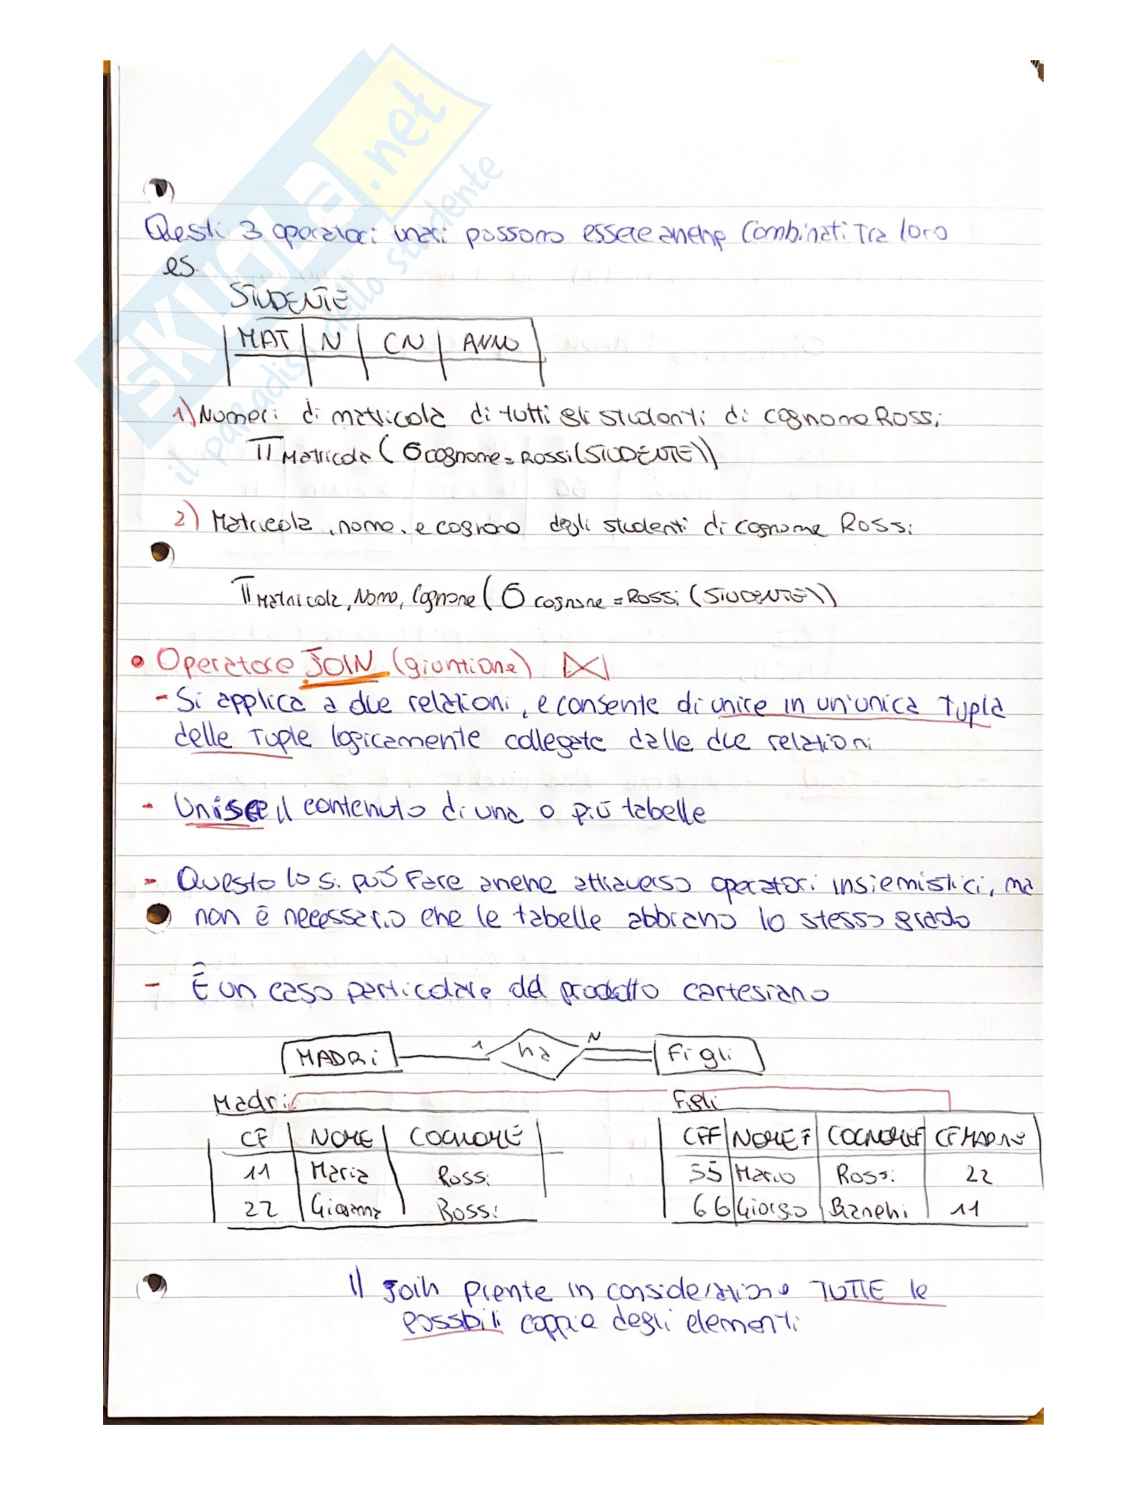 SKUOLA.net
il paradiso dello studente
Questi 3 operatori unari possono essere anche combinati Tra loro
es.
STUDENTE
MAT N CN ANNO
1) Numeri di matricola di tutti gli studenti di cognome Rossi
π Matricola (σ cognome = Rossi (STUDENTE))
2) Matricola, nome, e cognome degli studenti di cognome Rossi
π Matricola, Nome, Cognome (σ cognome = Rossi (STUDENTE))
• Operatore JOIN (giuntione) ⋈
- Si applica a due relazioni, e consente di unire in un'unica Tupla
delle Tuple logicamente collegate dalle due relazioni
- Unisce il contenuto di una o più tabelle
- Questo lo si può fare anche attraverso operatori insiemistici, ma
non è necessario che le tabelle abbiano lo stesso grado
- È un caso particolare del prodotto cartesiano
MADRI 1 ha N Figli
Madri Figli
CF NOME COGNOME CFF NOME F COGNOME F CF MADRE
11 Maria Rossi 55 Mario Rossi 22
22 Gioanna Rossi 66 Giorgo Bianchi 11
Il Join prente in considerazione TUTTE le
possbili coppie degli elementi